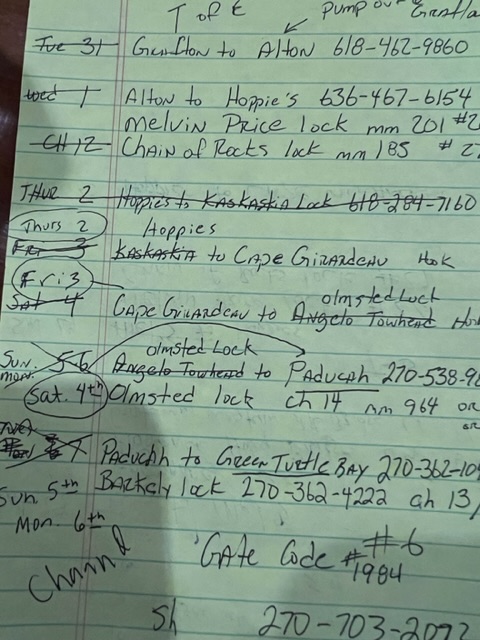 T of E pump out Grafton
Tue 31 Grafton to Alton 618-462-9860
Wed 1 Alton to Hoppie's 636-467-6154
Melvin Price lock mm 201 #2
CH 12 Chain of Rocks lock mm 185 # 27
Thur 2 Hoppies to Kaskaskia Lock 618-284-7160
Thurs 2 Hoppies
Fri 3 Kaskaskia to Cape Girardeau Hook
Fri 3
Sat 4 Cape Girardeau to Angelo Towhead
Olmsted Lock
Olmsted Lock
Sun. 5 6 Angelo Towhead to Paducah 270-538-9
mon.
Sat. 4th Olmsted lock ch 14 mm 964 or
or
Tue 7 Paducah to Green Turtle Bay 270-362-10
Sun 5th Barkely lock 270-362-4222 ch 13/
Mon. 6th
Gate Code #6
#1984
Sh 270-703-2